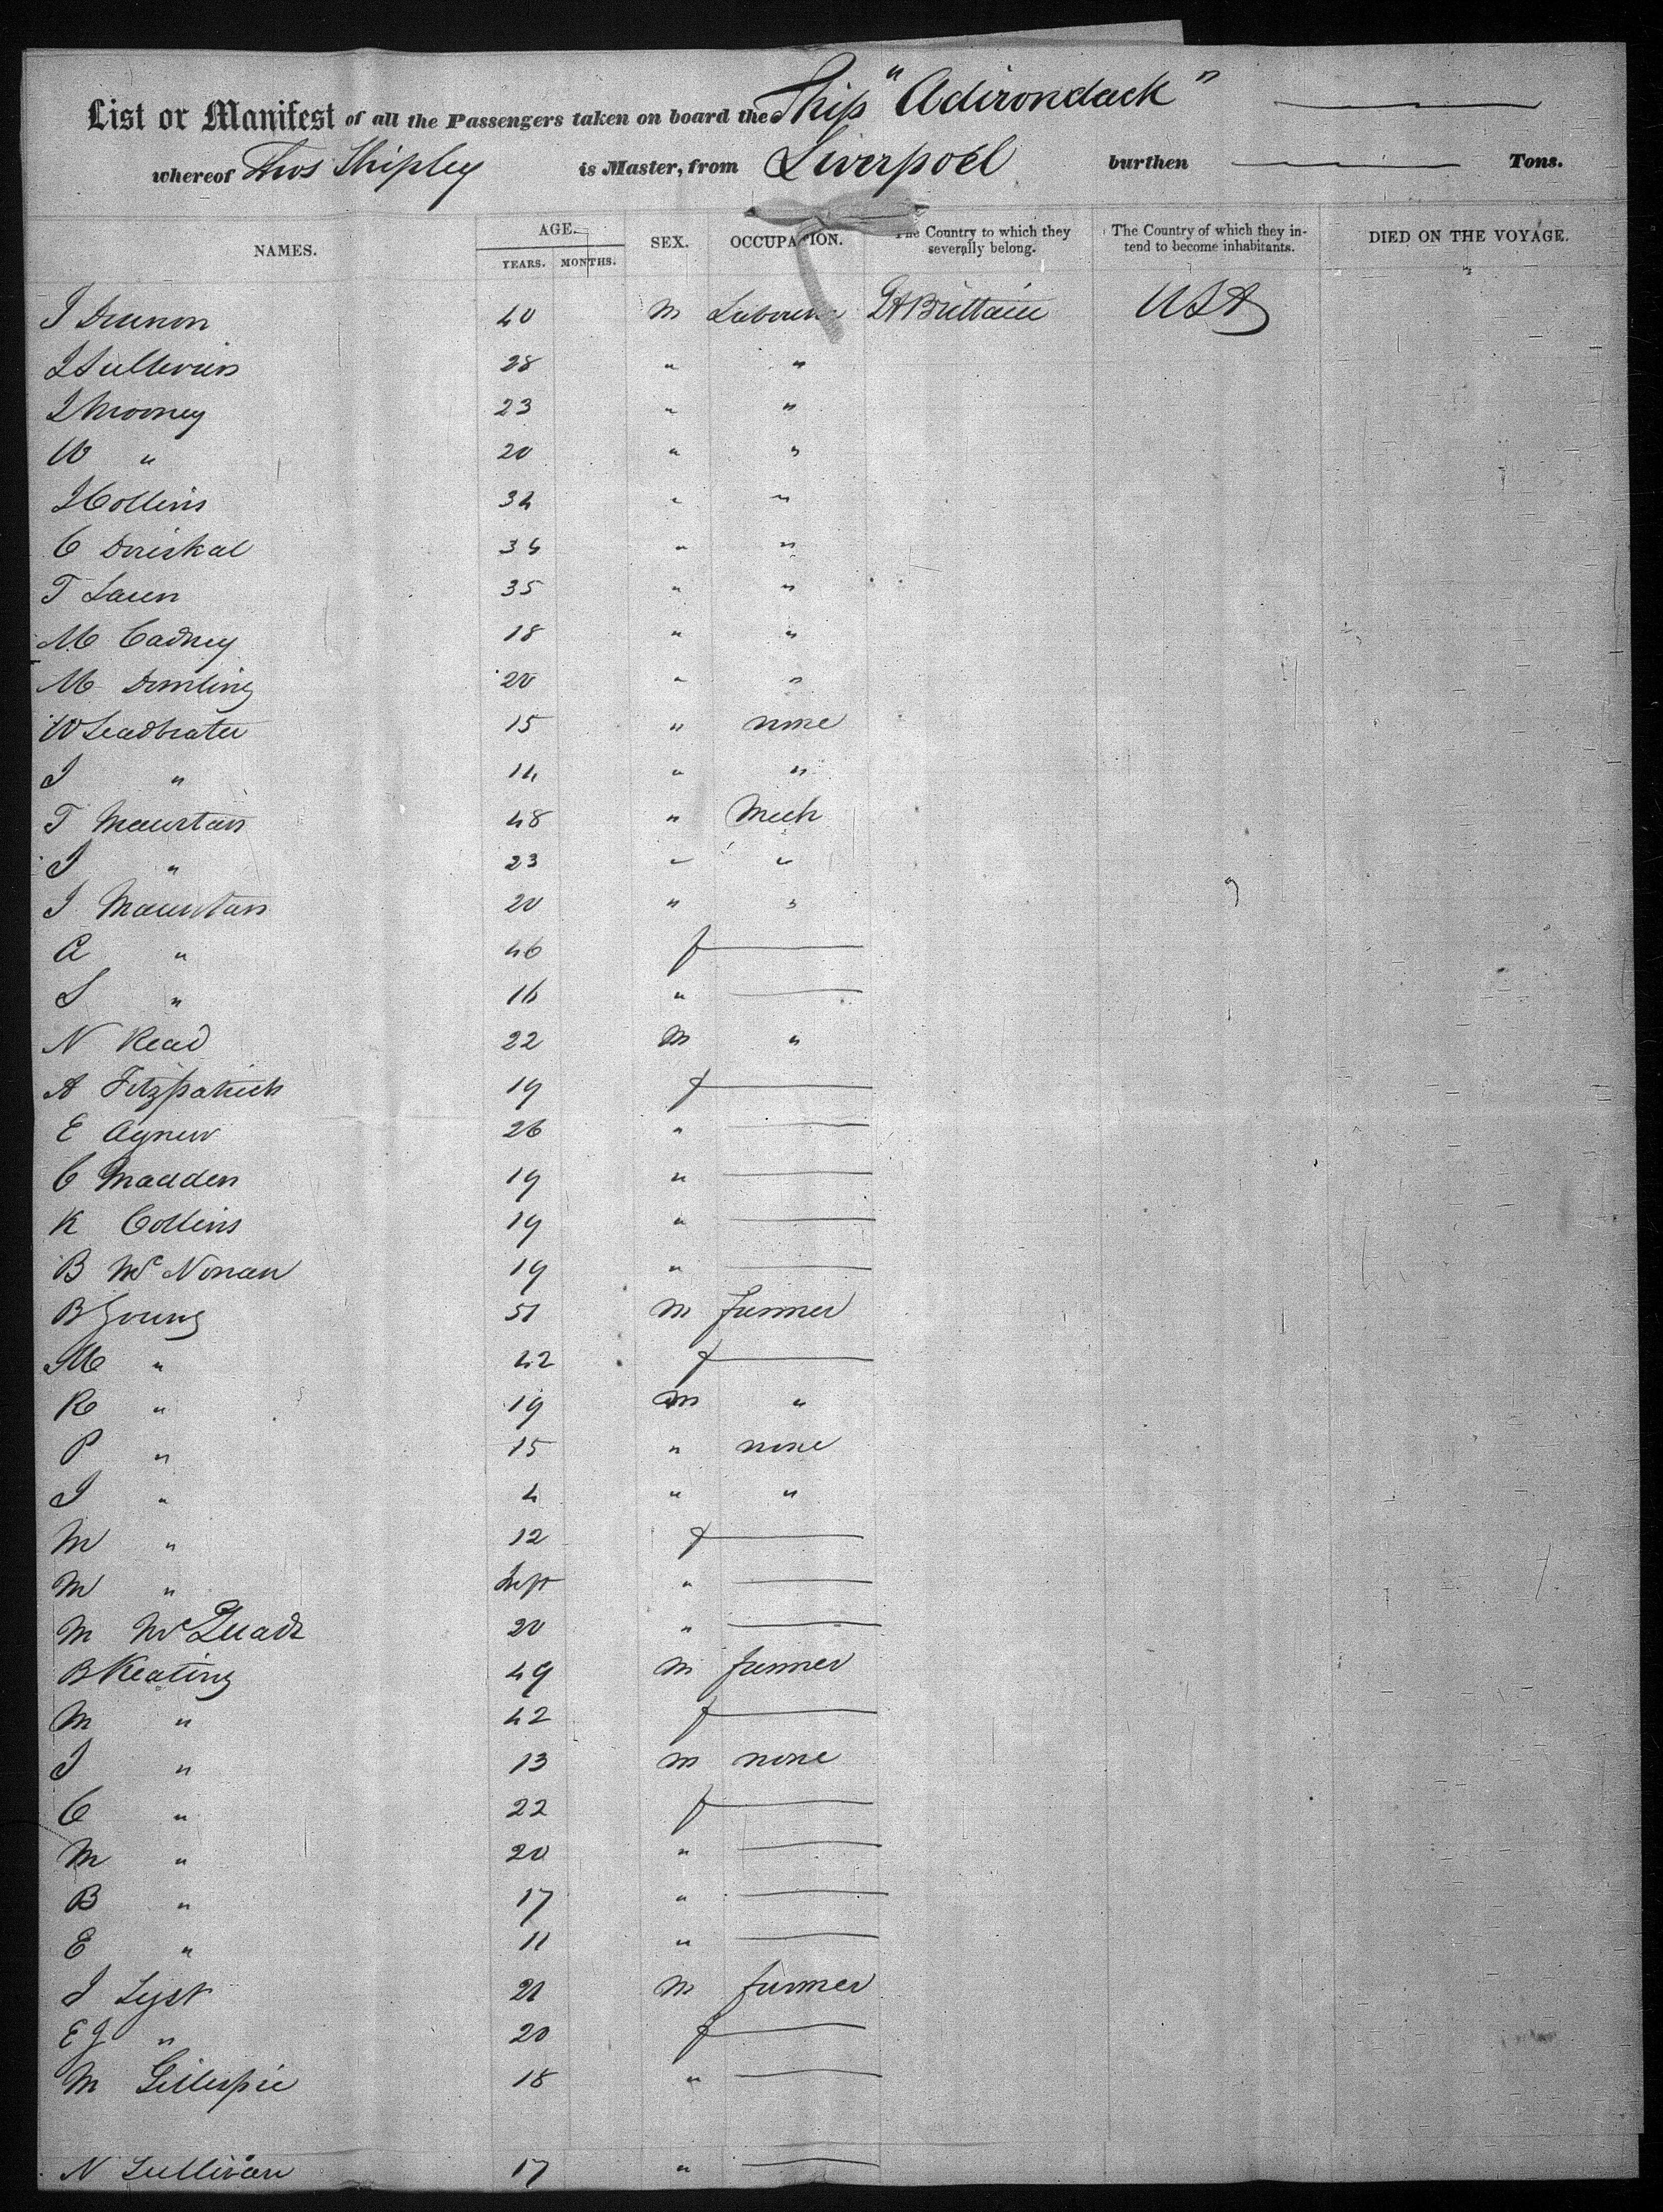 List or Manifest of all the Passengers taken on board the Ship "Adirondack"
whereof Thos Shipley is Master, from Liverpool burthen Tons.
NAMES. AGE. YEARS. MONTHS. SEX. OCCUPATION. The Country to which they severally belong. The Country of which they intend to become inhabitants. DIED ON THE VOYAGE.
J 40 m Labourer Gt Brittain USA
J Sullivan 28 " "
J Mooney 23 " "
W " 20 " "
J Collins 34 " "
C Driskal 34 " "
T 35 " "
M Cadney 18 " "
M 20 " "
W Leadbeater 15 " none
J " 14 " "
T Mountan 48 " Mech
J " 23 " "
J Mountan 20 " "
A " 46 f
S " 16 "
N Read 22 m "
A Fitzpatrick 19 f
E Agnew 26 "
C Madden 19 "
K Collins 19 "
B McNonan 19 "
B Young 51 m farmer
M " 42 f
R " 19 m "
P " 15 " none
J " 4 " "
M " 12 f
M " Inft "
M McQuade 20 "
B Keating 49 m farmer
M " 42 f
J " 13 m none
C " 22 f
M " 20 "
B " 17 "
E " 11 "
J Lyst 21 m farmer
E J " 20 f
M Gillespie 18 "
N Sullivan 17 "